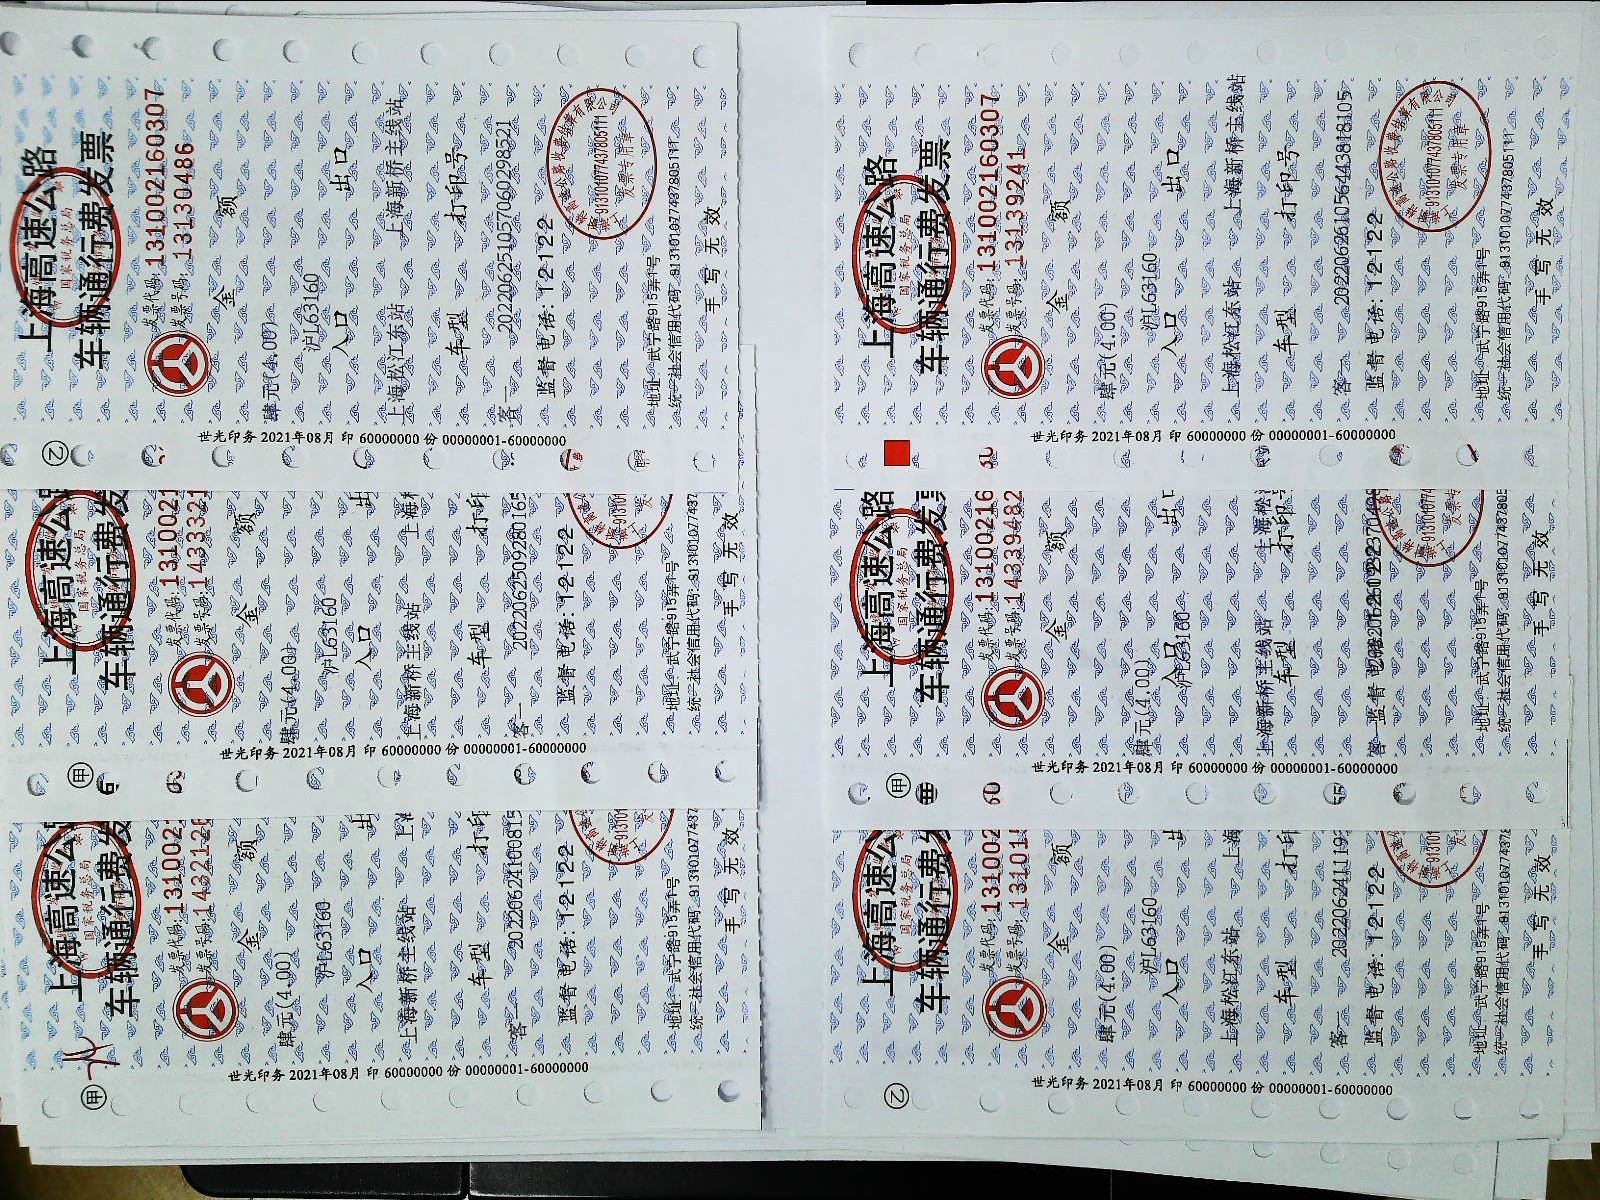 上海高速公路
国家税务总局
车辆通行费发票
发票代码: 131002160307
发票号码: 13130486
金 额
肆元(4.00)
沪L63160
入口 出口
上海松江东站 上海新桥主线站
车型 打印号
客一 202206251057060298521
监督电话: 12122
91310107743780511T
发票专用章
地址: 武宁路915弄1号
统一社会信用代码: 91310107743780511T
手写无效
世光印务 2021年08月 印 60000000 份 00000001-60000000
乙
上海高速公路
国家税务总局
车辆通行费发票
发票代码: 131002160307
发票号码: 13139241
金 额
肆元(4.00)
沪L63160
入口 出口
上海松江东站 上海新桥主线站
车型 打印号
客一 202206261056443818105
监督电话: 12122
91310107743780511T
发票专用章
地址: 武宁路915弄1号
统一社会信用代码: 91310107743780511T
手写无效
世光印务 2021年08月 印 60000000 份 00000001-60000000
上海高速公
国家税务总局
车辆通行费发
发票代码: 1310021
发票号码: 1433321
金 额
肆元(4.00)
沪L63160
入口 出
上海新桥主线站 上海
车型 打印
客一 2022062509280165
监督电话: 12122
地址: 武宁路915弄1号
统一社会信用代码: 913101077437
手写无效
世光印务 2021年08月 印 60000000 份 00000001-60000000
甲
上海高速公路
国家税务总局
车辆通行费发票
发票代码: 13100216
发票号码: 14339482
金 额
肆元(4.00)
沪L63160
入口 出
上海新桥主线站 上海松
车型 打印号
客一
监督电话:
地址: 武宁路915弄1号
统一社会信用代码: 913101077437805
手写无效
世光印务 2021年08月 印 60000000 份 00000001-60000000
甲
上海高速公
国家税务总局
车辆通行费发
发票代码: 131002
发票号码: 1432126
金 额
肆元(4.00)
沪L63160
入口 出
上海新桥主线站 上
车型 打印
客一 20220624100815
监督电话: 12122
地址: 武宁路915弄1号
统一社会信用代码: 913101077437
手写无效
世光印务 2021年08月 印 60000000 份 00000001-60000000
甲
上海高速公
国家税务总局
车辆通行费发
发票代码: 131002
发票号码: 131011
金 额
肆元(4.00)
沪L63160
入口 出
上海松江东站 上海
车型 打印
客一 20220624111195
监督电话: 12122
地址: 武宁路915弄1号
统一社会信用代码: 9131010774378
手写无效
世光印务 2021年08月 印 60000000 份 00000001-60000000
乙